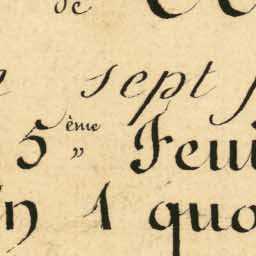 de
sept
5ème Feui
in 1 quo